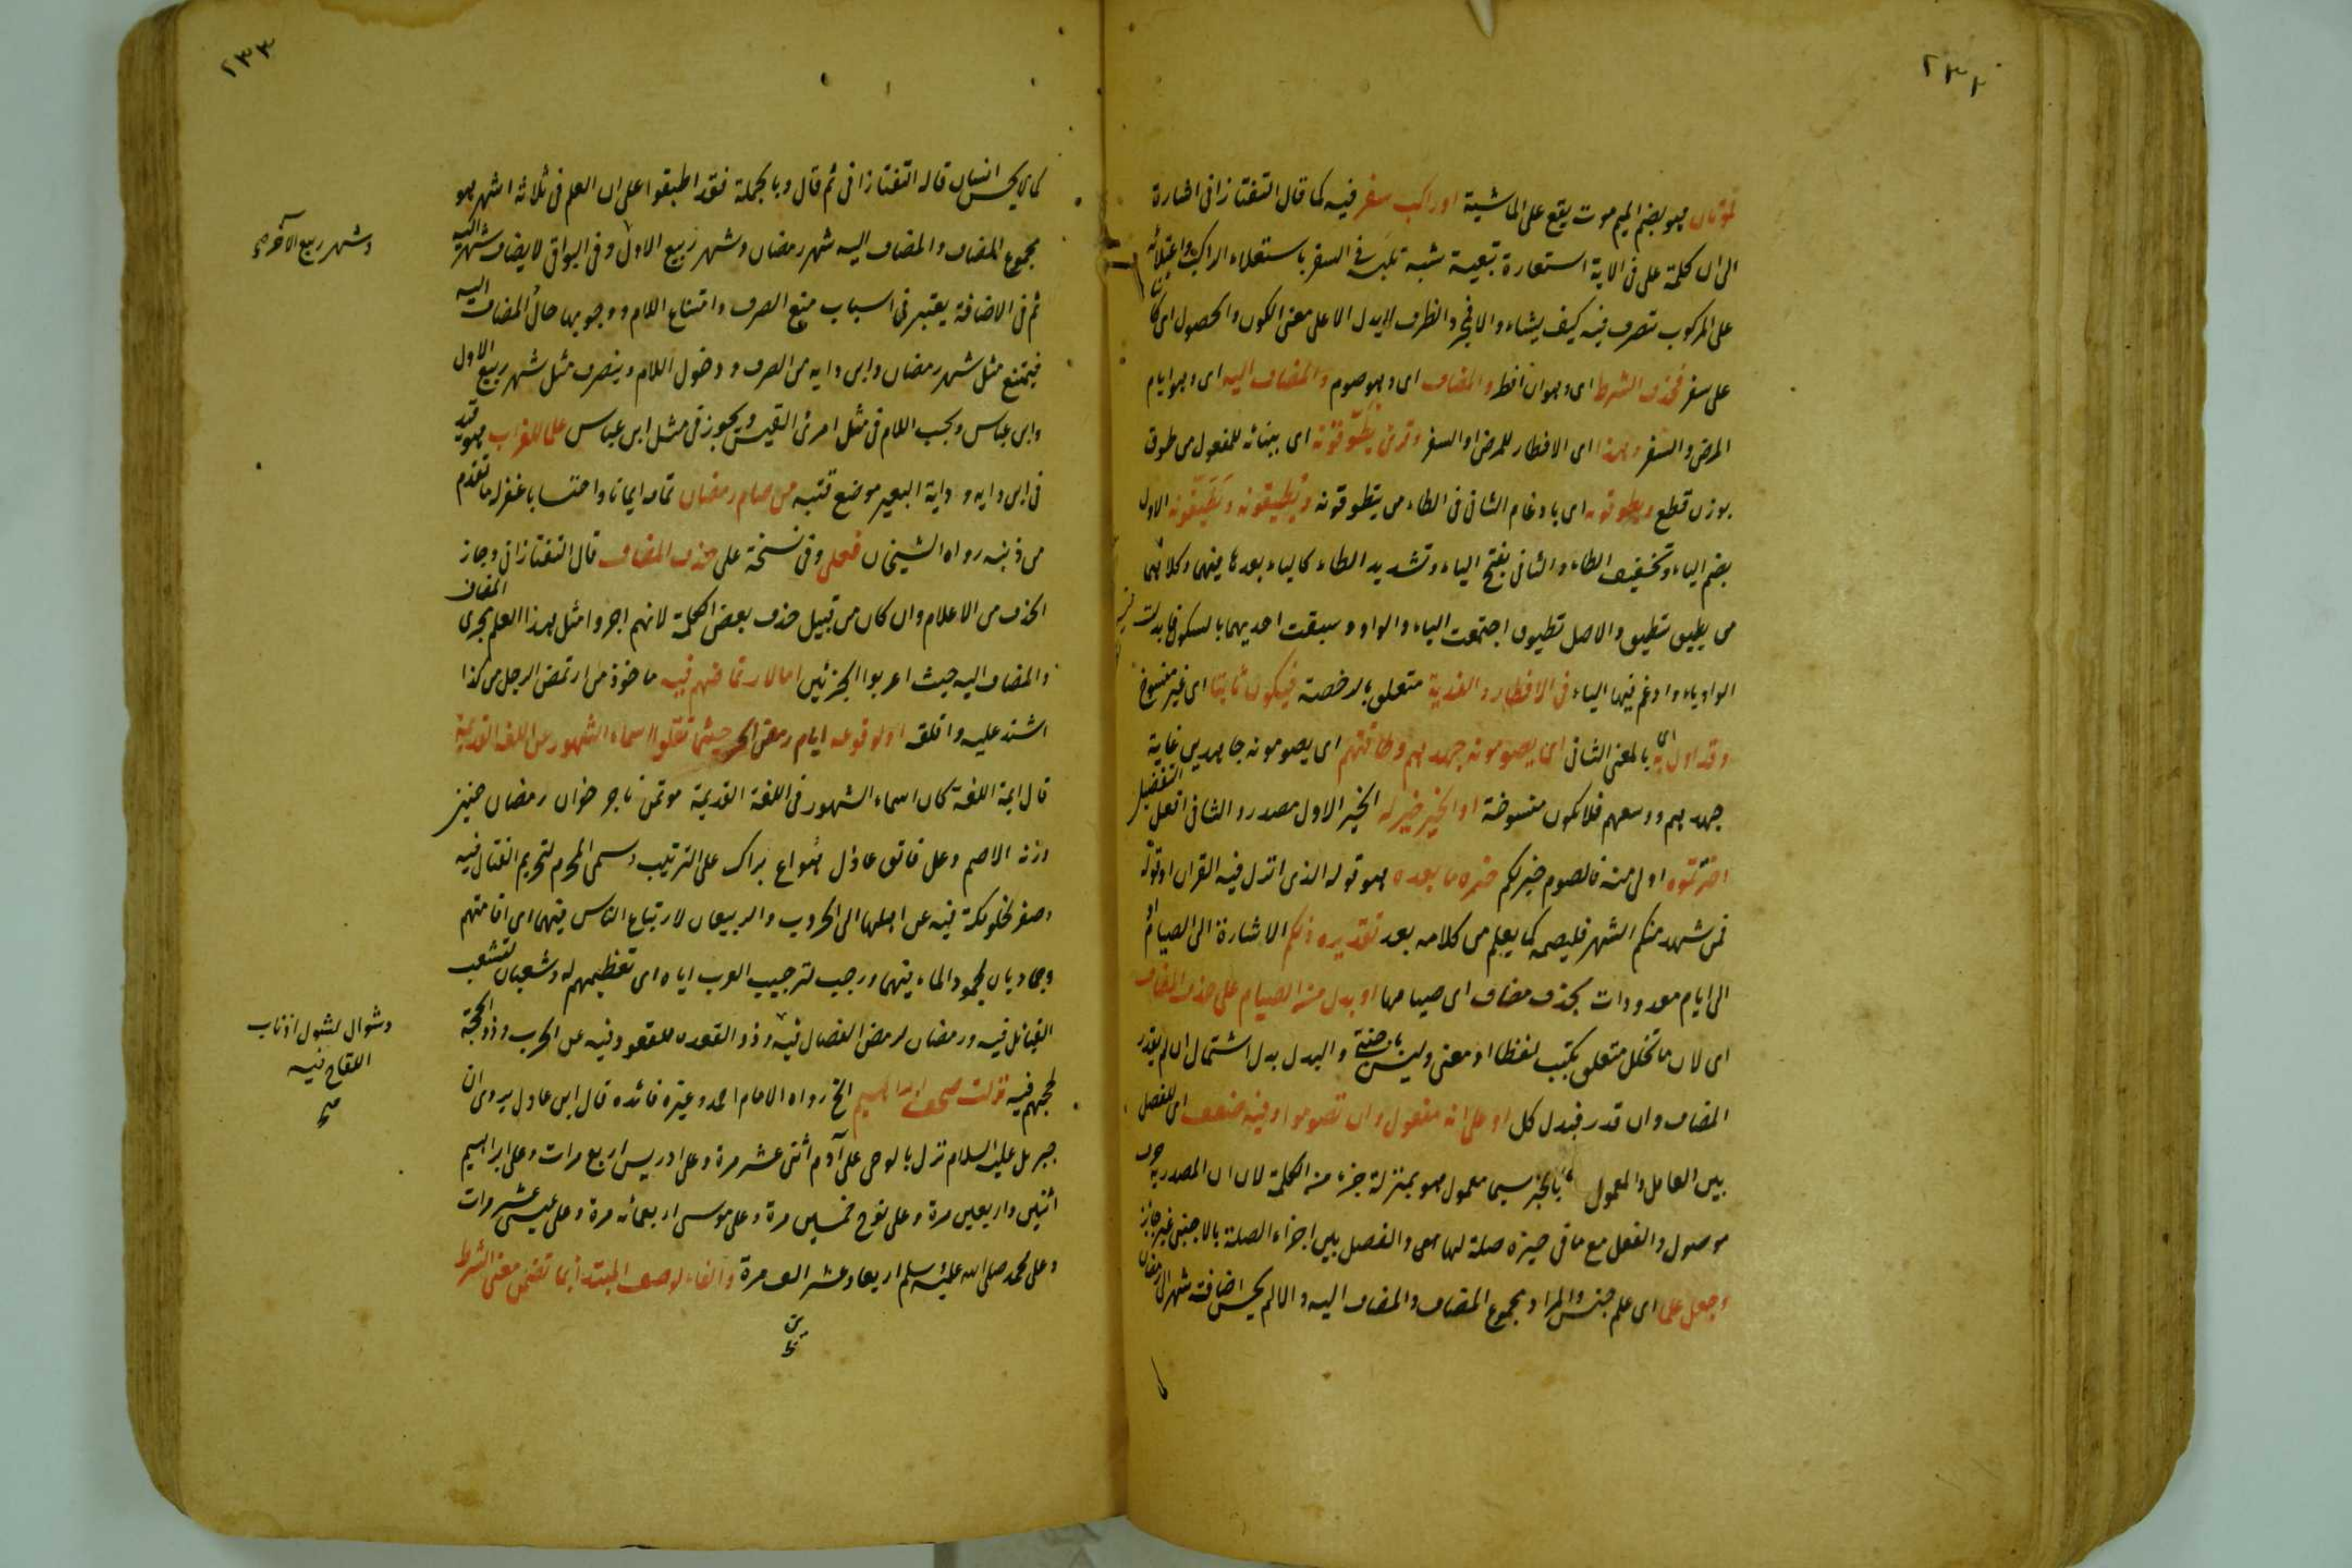 ٢٣٢
موتان فهو بضم الميم موت يقع على الماشية او راكب سفر فيه كما قال التفتازانى اشارة
الى ان كلمة على فى الاية استعارة تبعية شبه تلبسه فى السفر باستعلاء الراكب واعتلائه
على المركوب تصرف فيه كيف يشاء والا فحرف الظرف لا يدل الا على معنى الكون والحصول اى كائنا
على سفر فحذف الشرط اى وهو ان افطر والمضاف اى وهو صوم والمضاف اليه اى وهو ايام
المرض والسفر وهذا اى الافطار للمرض او السفر وقرئ يطوقونه اى ببنائه للمفعول من طوق
بوزن قطع ويطوقونه اى بادغام الثانى فى الطاء من يتطوقونه ويطيقونه ويطيقونه الاول
بضم الياء وتخفيف الطاء والثانى بفتح الياء وتشديد الطاء كالياء بعدها فيهما وكلاهما
من يطيق تطيق والاصل تطيوق اجتمعت الياء والواو وسبقت احديهما بالسكون فابدلت
الواو ياء وادغم فيها الياء فى الافطار والفدية متعلق بالرخصة فيكون ثابتا اى غير منسوخ
وقد اول به اى بالمعنى الثانى اى يصومونه جهدهم وطاقتهم اى يصومونه جاهدين غاية
جهدهم ووسعهم فلا تكون منسوخة او الخير خير له الخير الاول مصدر والثانى افعل التفضيل
اخترتموه اولى منه فالصوم خير لكم خبره ما بعده هو قوله الذى انزل فيه القران او قوله
فمن شهد منكم الشهر فليصمه كما يعلم من كلامه بعد تقديره ذلكم الاشارة الى الصيام او
الى ايام معدودات بحذف مضاف اى صيامها او بدل من الصيام على حذف المضاف
اى لان ما تخلل متعلق بكتب لفظا او معنى وليس باجنبى والبدل بدل اشتمال ان لم يقدر
المضاف وان قدر فبدل كل او على انه مفعول وان تصوموا وفيه ضعف اى للفصل
بين العامل والمعمول بالخبر سيما معمول هو بمنزلة جزء من الكلمة لان ان المصدرية حرف
موصول والفعل مع ما فى حيزه صلة لها معى والفصل بين اجزاء الصلة بالاجنبى غير جائز
وجعل علما اى علم جنس والمراد مجموع المضاف والمضاف اليه والا لم يحسن اضافة شهر الى رمضان
٢٣٣
كما لا يحسن انسان قاله التفتازانى ثم قال وبالجملة فقد اطبقوا على ان العلم فى ثلاثة اشهر هو
مجموع المضاف والمضاف اليه شهر رمضان وشهر ربيع الاول وفى البواقى لا يضاف شهر اليه
وشهر ربيع الآخر صح
ثم فى الاضافة يعتبر فى اسباب منع الصرف وامتناع اللام ووجوبها حال المضاف اليه
فيمتنع مثل شهر رمضان وابن داية من الصرف ودخول اللام وينصرف مثل شهر ربيع الاول
وابن عباس ويجب اللام فى مثل امرئ القيس ويجوز فى مثل ابن عباس علما للغراب هو قيد
فى ابن داية وداية البعير موضع قتبه من صام رمضان تمامه ايمانا واحتسابا غفر له ما تقدم
من ذنبه رواه الشيخان فعلى وفى نسخة على حذف المضاف قال التفتازانى وجاز
الحذف من الاعلام وان كان من قبيل حذف بعض الكلمة لانهم اجروا مثل هذا العلم مجرى المضاف
والمضاف اليه حيث اعربوا الجزئين اما لارتماضهم فيه ماخوذ من ارتمض الرجل من كذا
اشتد عليه واقلقه او لوقوعه ايام رمض الحر حيثما نقلوا اسماء الشهور عن اللغة القديمة
قال ايمة اللغة كان اسماء الشهور فى اللغة القديمة موتمر ناجر خوان رمضان حنين
ورنه الاصم وعل ناتق عاذل هواع براك على الترتيب وسمى المحرم لتحريم القتال فيه
وصفر لخلو مكة فيه عن اهلها الى الحروب والربيعان لارتباع الناس فيهما اى اقامتهم
وجماديان لجمود الماء فيهما ورجب لترجيب العرب اياه اى تعظيمهم له وشعبان لتشعب
القبائل فيه ورمضان لرمض الفصال فيه وذو القعدة للقعود فيه عن الحرب وذو الحجة
وشوال لشول اذناب
اللقاح فيه
صح
لحجهم فيه نزلت صحف ابراهيم الخ رواه الامام احمد وغيره فائدة قال ابن عادل يروى ان
جبريل عليه السلام نزل بالوحى على آدم اثنى عشر مرة وعلى ادريس اربع مرات وعلى ابراهيم
اثنين واربعين مرة وعلى نوح خمسين مرة وعلى موسى اربعمائه مرة وعلى عيسى عشر مرات
وعلى محمد صلى الله عليه وسلم اربعا وعشر الف مرة والفاء لوصف المبتدأ بما تضمن معنى الشرط